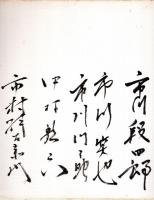 市川段四郎
市川笑也
市川門之助
中村歌六
市村萬次郎